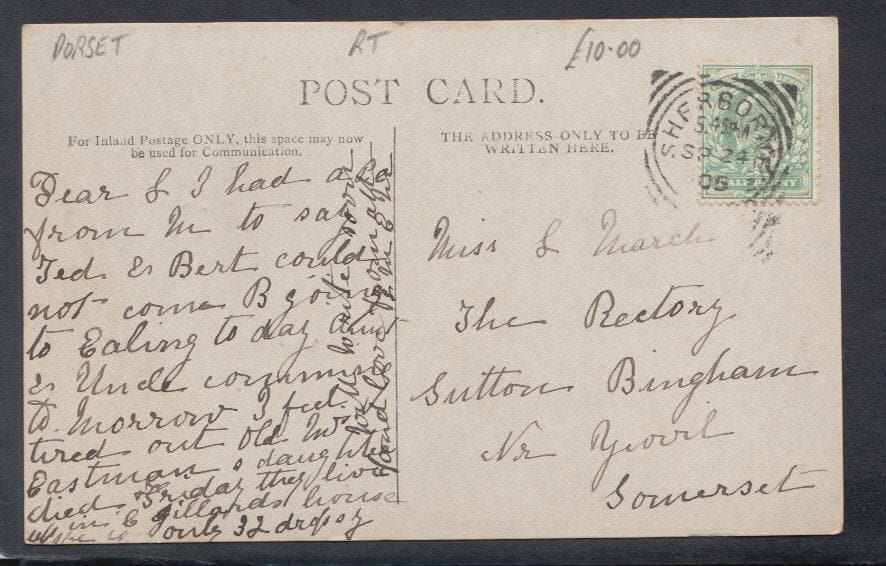 DORSET
RT
£10.00
POST CARD.
For Inland Postage ONLY, this space may now
be used for Communication.
THE ADDRESS ONLY TO BE
WRITTEN HERE.
SHERBORNE
5.45PM
SP 24
06
HALFPENNY
Dear L I had a
from M to say
Ted & Bert could
not come B going
to Ealing to day Aunt
& Uncle comming
to. Morrow I feel
tired out Old Mr
Eastman s daughter
died Friday they live
in C Gillards house
only 32 dropsy
Will write soon
fond love from all
Miss L March
The Rectory
Sutton Bingham
Nr Yeovil
Somerset